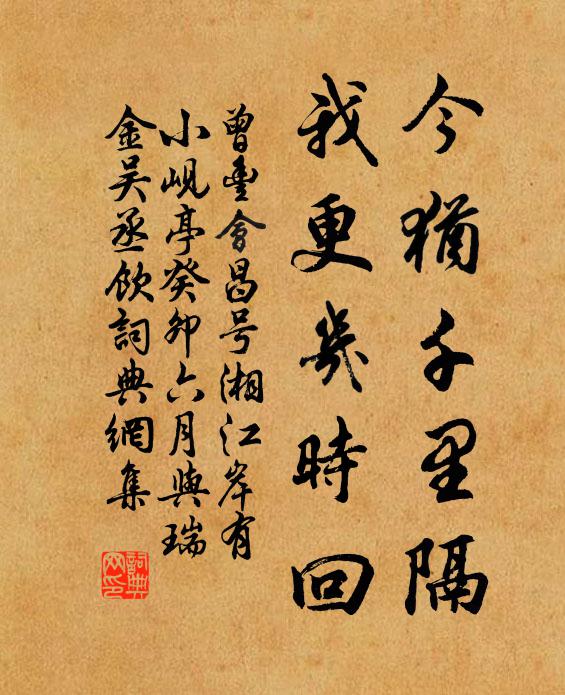 今猶千里隔
我更幾時回
曾豊會昌号湘江岸有
小峴亭癸卯六月與瑞
金吴丞飲詞典網集
詞典
网印